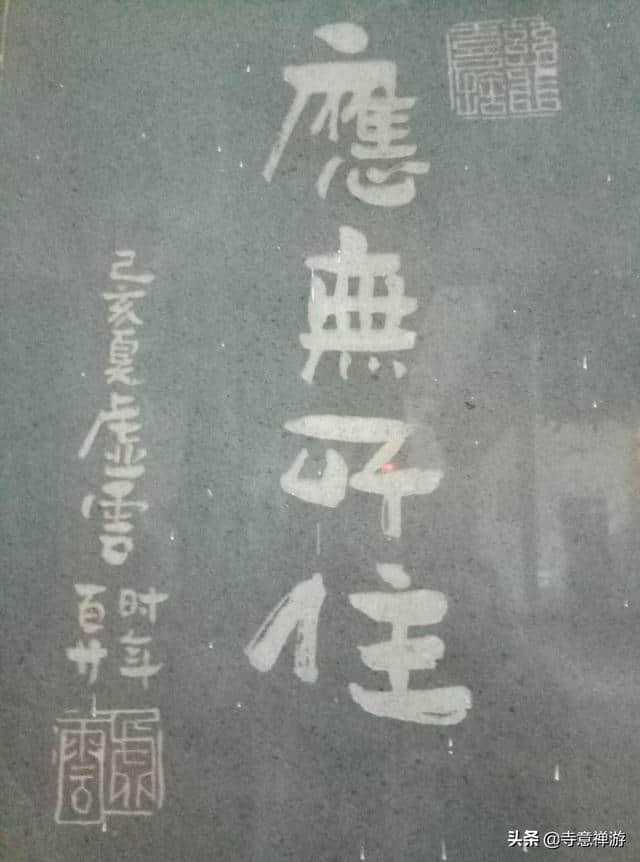 應無所住
己亥夏虛雲
时年
百廿
頭条 @寺意禅游